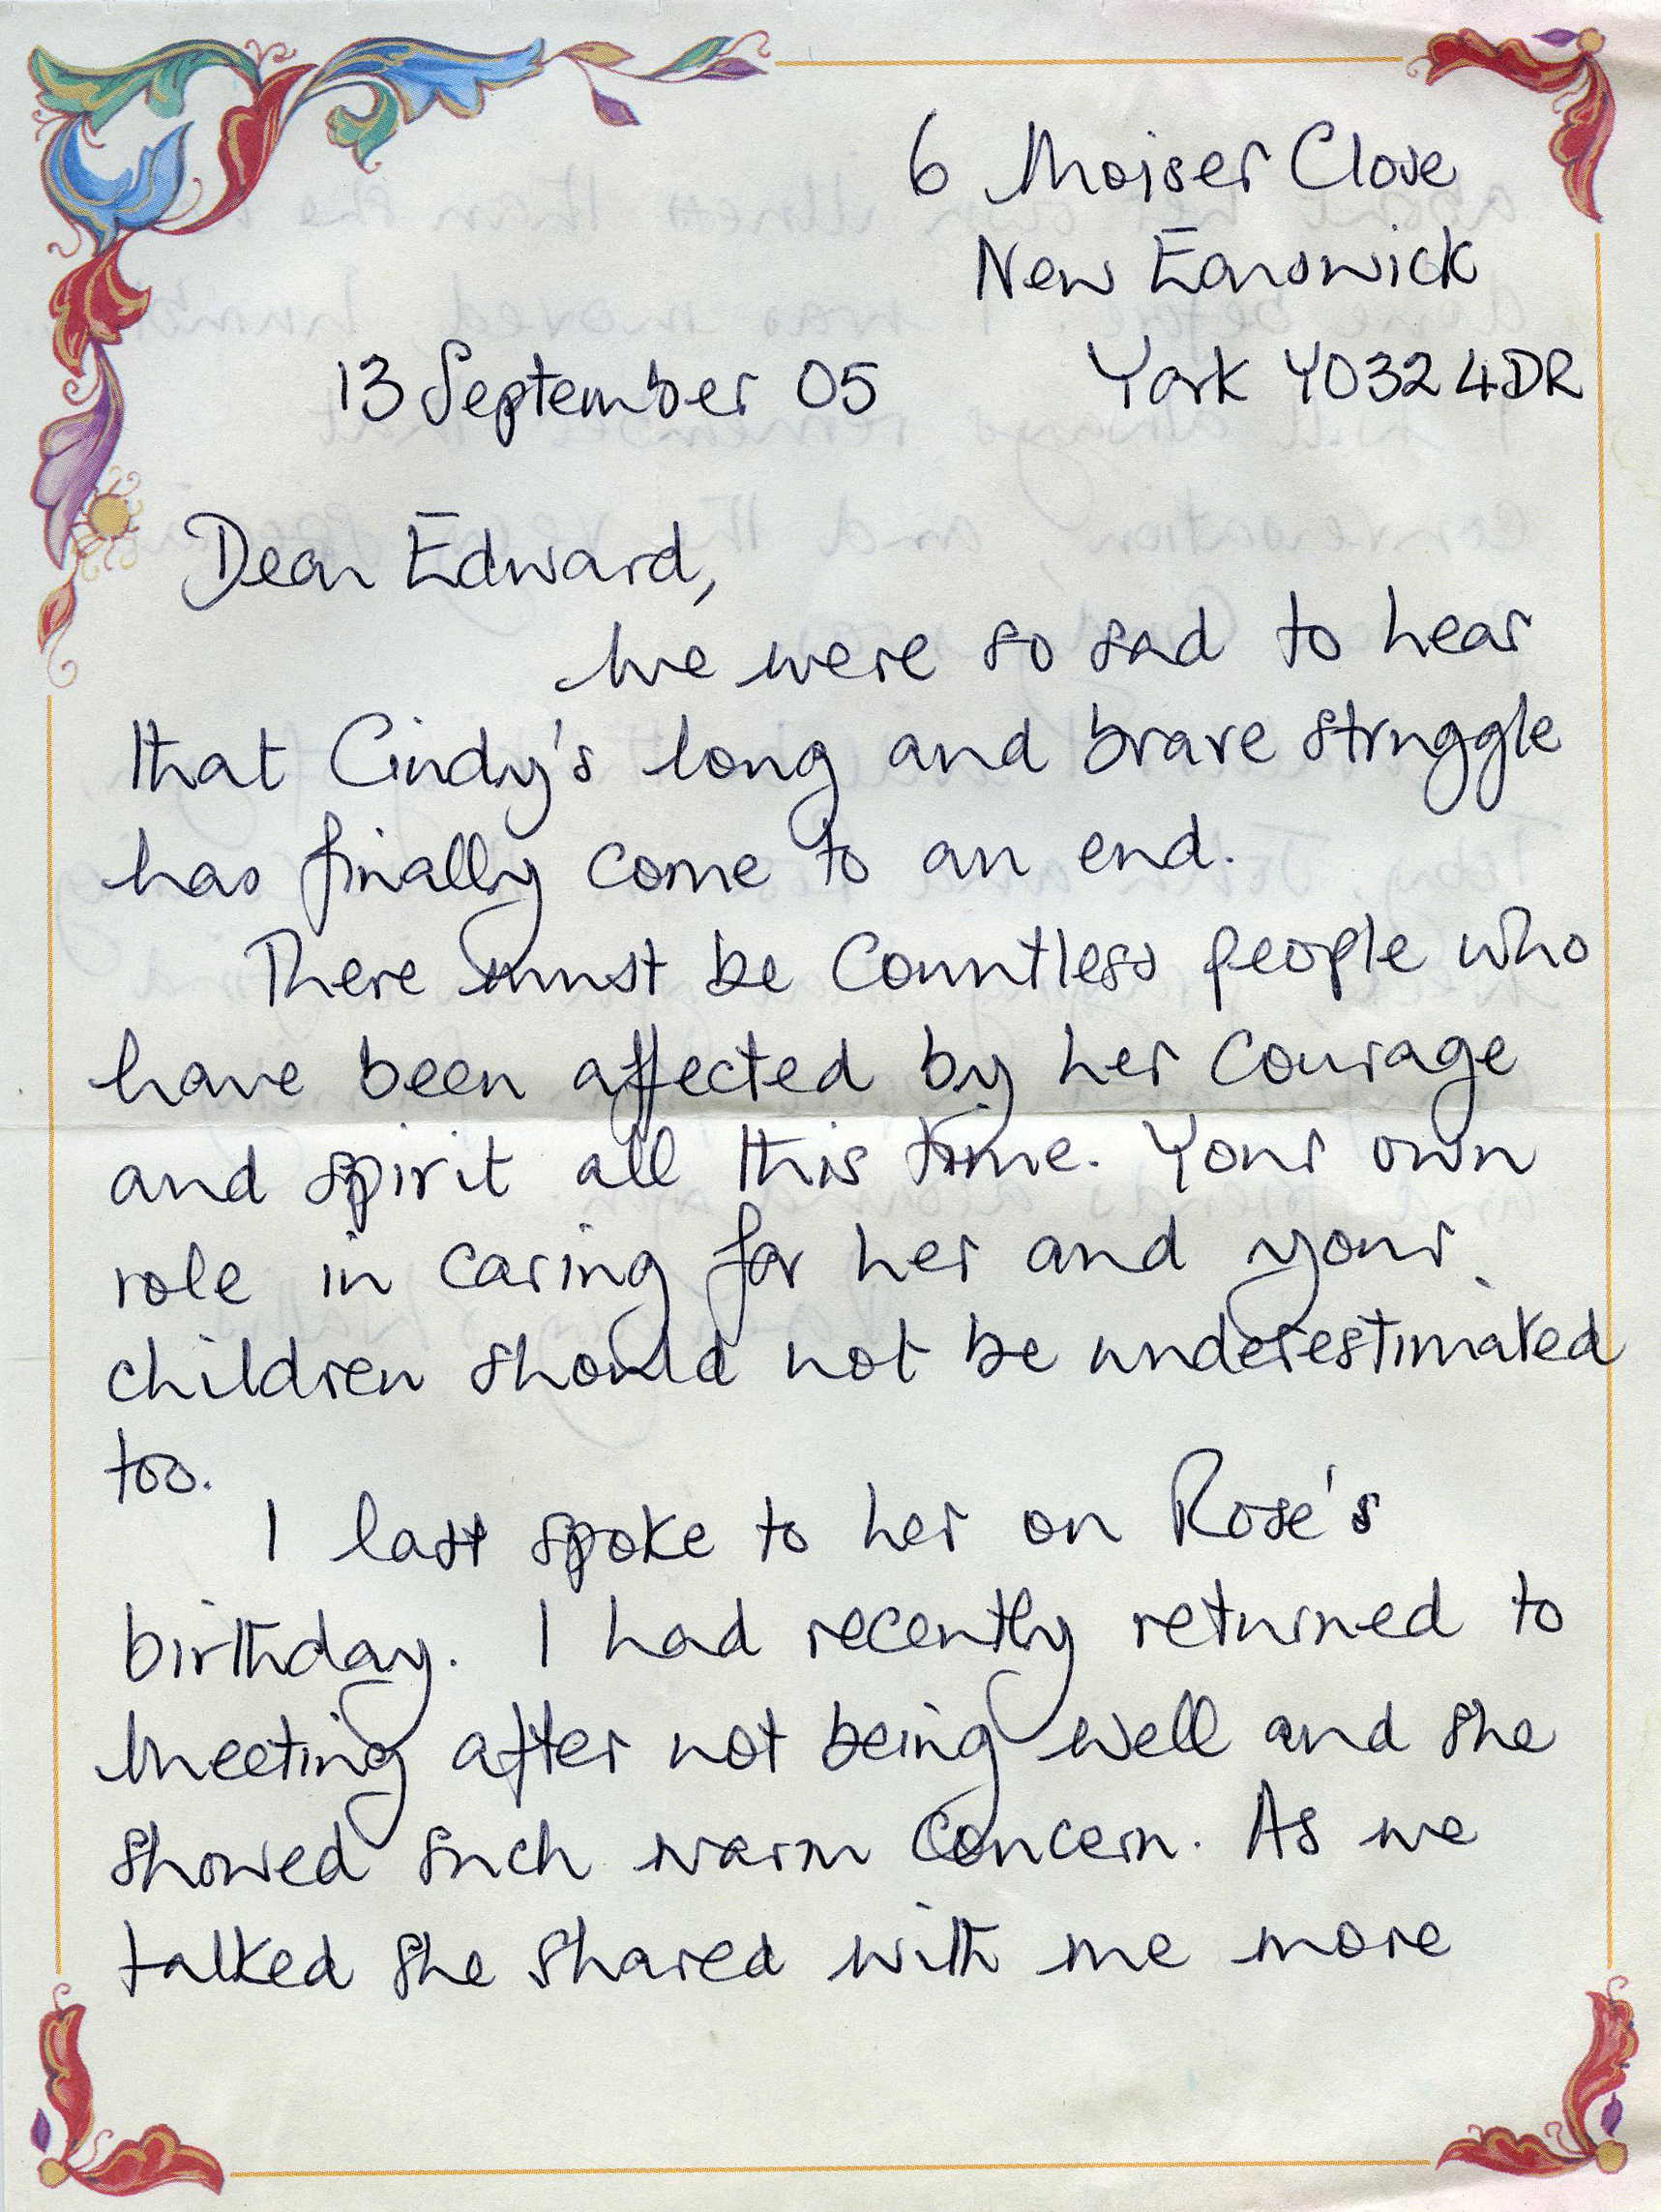 6 Moiser Close
New Earswick
13 September 05 York YO32 4DR
Dear Edward,
We were so sad to hear
that Cindy's long and brave struggle
has finally come to an end.
There must be countless people who
have been affected by her courage
and spirit all this time. Your own
role in caring for her and your
children should not be underestimated
too.
I last spoke to her on Rose's
birthday. I had recently returned to
Meeting after not being well and she
showed such warm concern. As we
talked she shared with me more